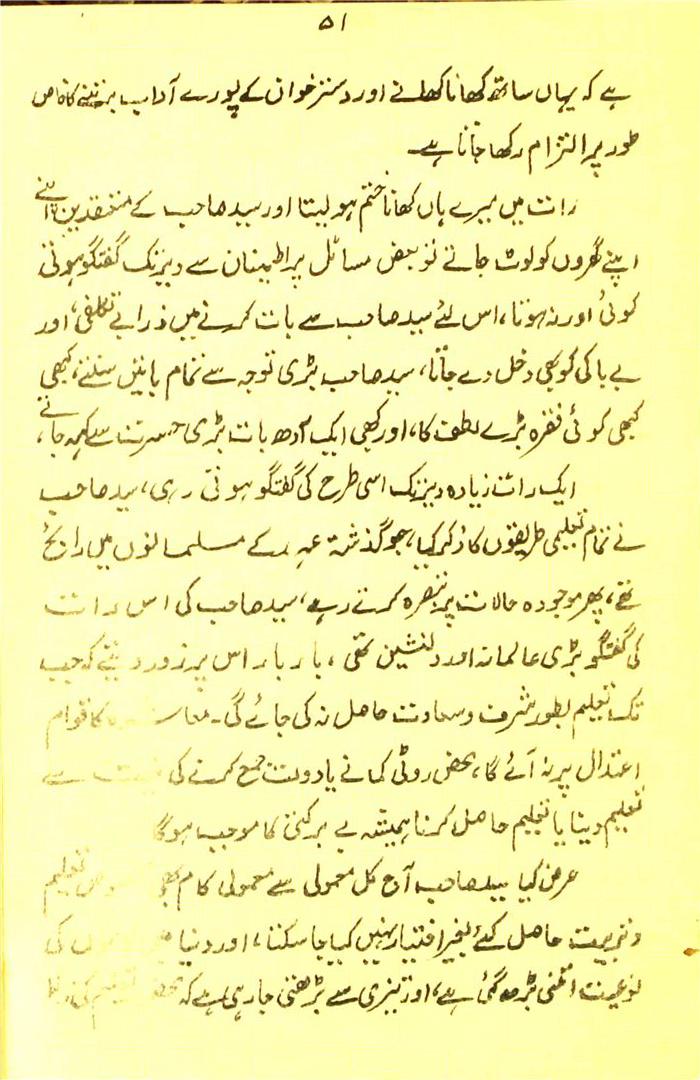 ۵۱
ہے کہ یہاں ساتھ کھانا کھلانے اور دسترخوان کے پورے آداب برتنے کا خاص
طور پر التزام رکھا جاتا ہے۔
رات میں میرے ہاں کھانا ختم ہولیتا اور سید صاحب کے معتقدین اپنے
اپنے گھروں کو لوٹ جاتے تو بعض مسائل پر اطمینان سے دیر تک گفتگو ہوتی
کوئی اور نہ ہوتا، اس لئے سید صاحب سے بات کرنے میں ذرا بے تکلفی، اور
بے باکی کو بھی دخل دے جاتا، سید صاحب بڑی توجہ سے تمام باتیں سنتے، کبھی
کبھی کوئی فقرہ بڑے لطف کا، اور کبھی ایک آدھ بات بڑی حسرت سے کہہ جاتے،
ایک رات زیادہ دیر تک اسی طرح کی گفتگو ہوتی رہی، سید صاحب
نے تمام تعلیمی طریقوں کا ذکر کیا، جو گذشتہ عہد کے مسلمانوں میں رائج
تھے، پھر موجودہ حالات پر تبصرہ کرتے رہے، سید صاحب کی اس رات
کی گفتگو بڑی عالمانہ اور دلنشین تھی، بار بار اس پر زور دیتے کہ جب
تک تعلیم بطور شرف و سعادت حاصل نہ کی جائے گی۔ کا قوام
اعتدال پر نہ آئے گا، محض روٹی کمانے یا دولت جمع کرنے کی سے
تعلیم دینا یا تعلیم حاصل کرنا ہمیشہ بے برکتی کا موجب ہوگا
عرض کیا سید صاحب آج کل معمولی سے معمولی کام تعلیم
و تربیت حاصل کئے بغیر اختیار نہیں کیا جاسکتا، اور دنیا کی
نوعیت اتنی بڑھ گئی ہے، اور تیزی سے بڑھتی جارہی ہے کہ